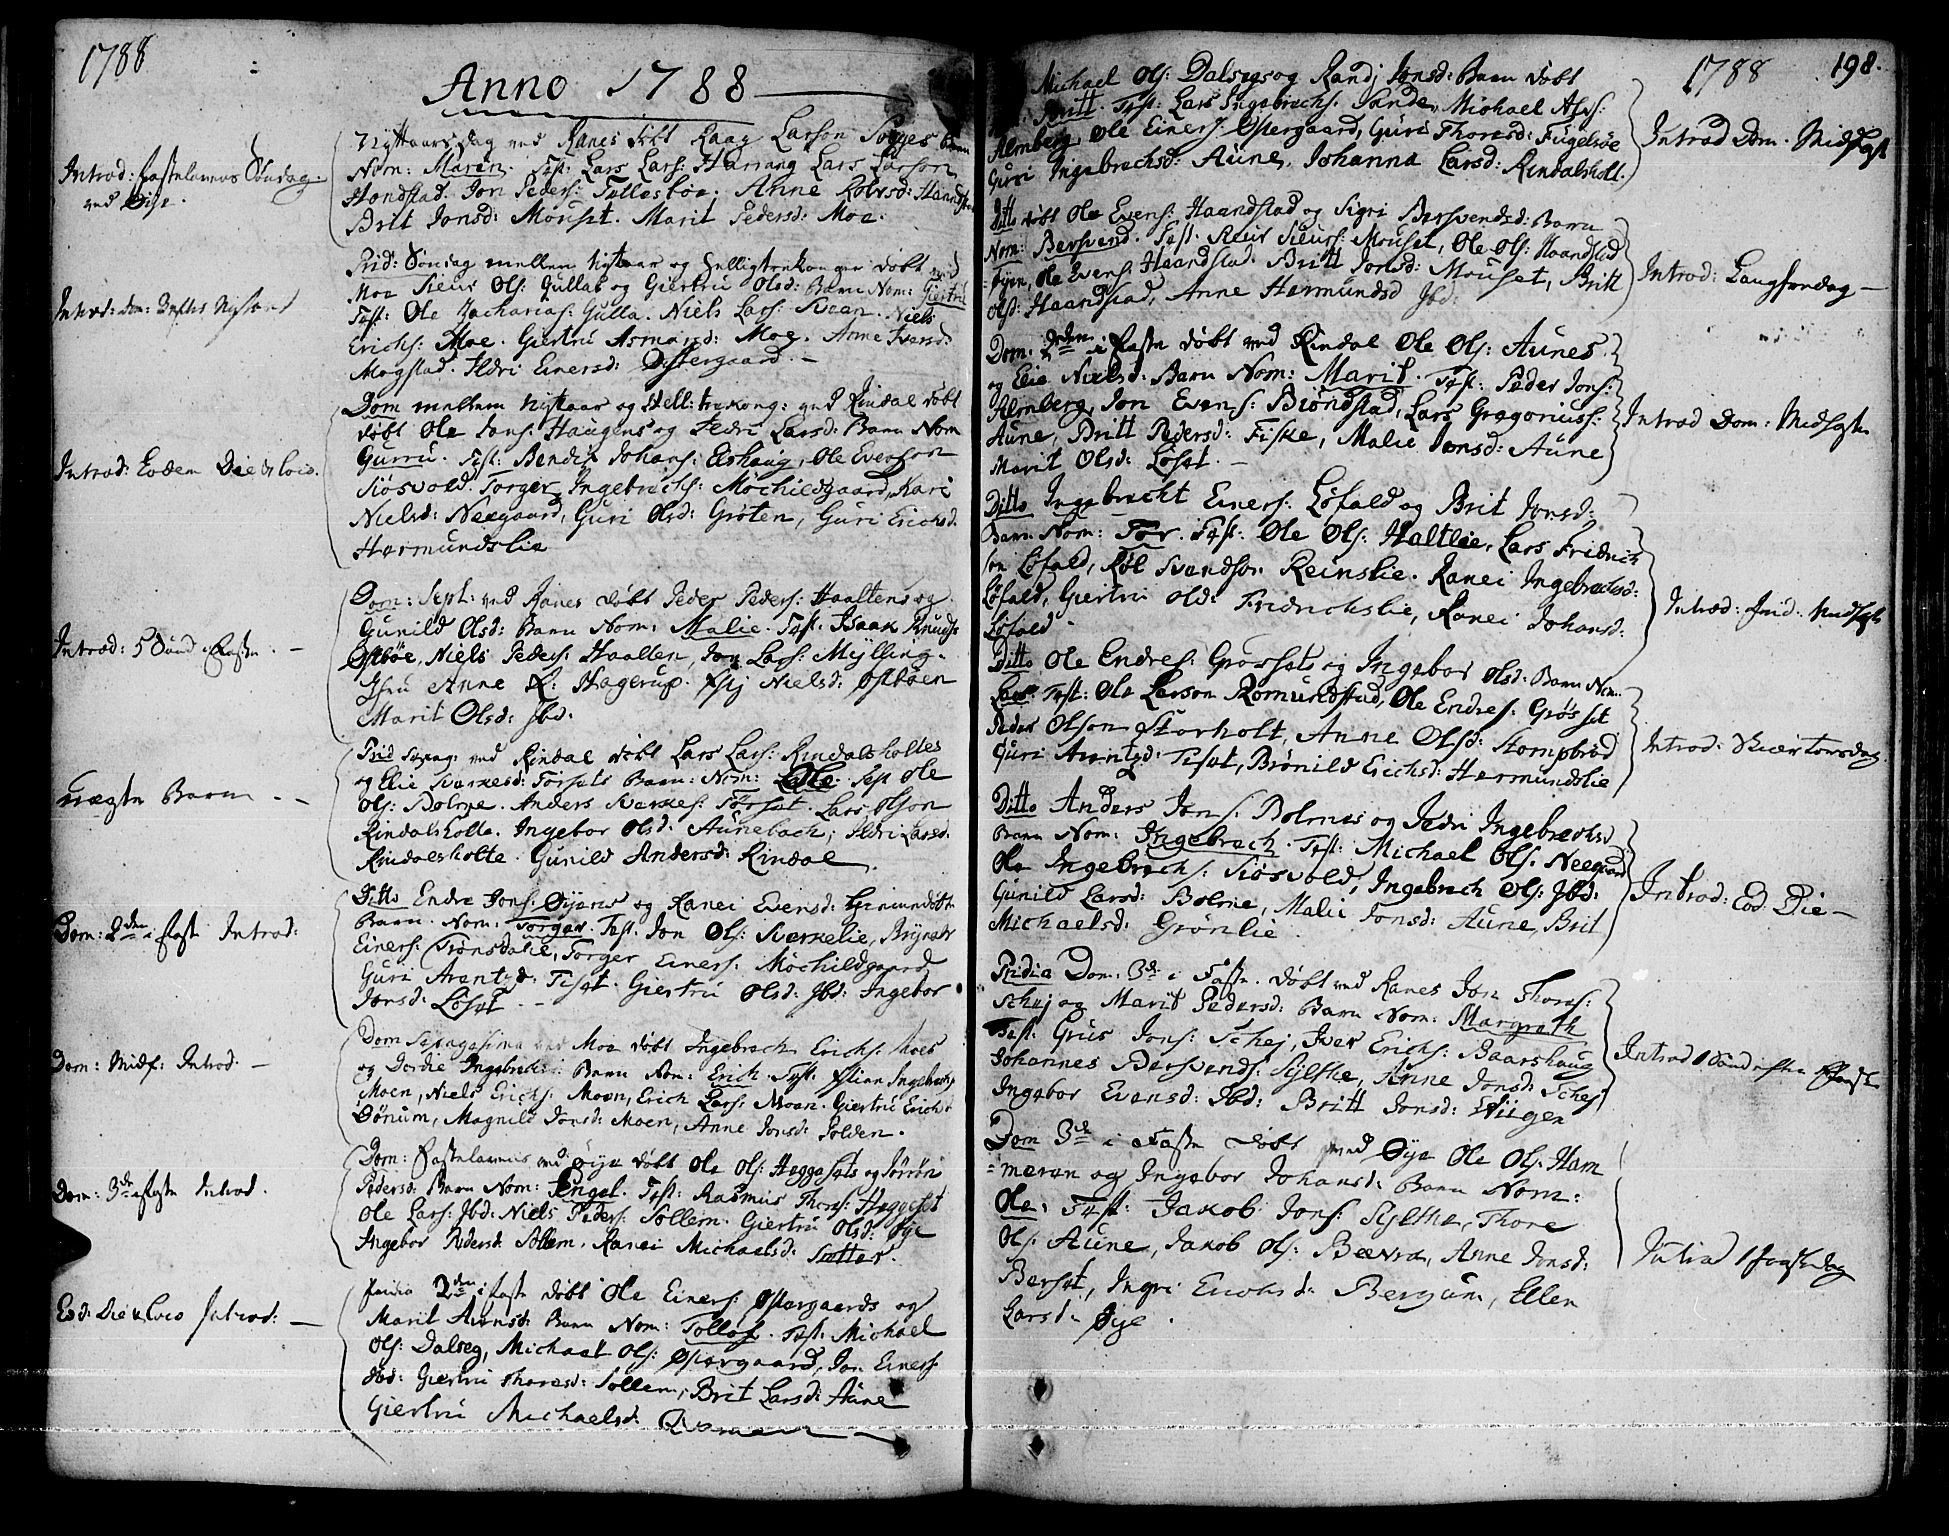 1788
Anno 1788
Introd: Fastelavns Söndag.
ved Öije.
Nyttaarsdag ved Ranes döbt Raag Larson Sogges barn
Nom: Maren. Test: Lars Lars: Harrang Lars Larson
Handstad. Jon Peders: Tellesböe, Anne Rolvsd:
Brit Jonsd: Mouset. Marit Pedersd: Moe.
Introd: Dom: Efter
Prid: Söndag mellem Nytaar og Helligtrekonger döbt ved
Moe Siur Ols: Gullas og Giertru Olsd: Barn Nom: Giertru
Test: Ole Zacharias: Gulla. Niels Lars: Svean. Niels
Erichs: Moe. Giertru Asmundsd: Moe. Anne Iversd:
Mogstad. Ildri Einersd: Östergaard. —
Introd: Eodem Die & loco.
Dom mellem Nytaar og Hell: trekong: ved Rindal döbt
döbt Ole Jons: Haugens og Ildri Larsd: Barn Nom
Gurru. Test: Bendix Johans: Elshaug, Ole Everson
Siösvold. Torger Ingebrichs: Mochildgaard, Kari
Nielsd: Neegaard, Guri Olsd: Gröten, Guri Erichsd:
Hermundslie
Introd: 5 Sönd i Faste. —
Dom: Sept: ved Ranes döbt Peder Peders: Haaltens og
Gunild Olsd: Barn Nom: Malie. Test. Isaak Knuds
Ostböe, Niels Peders: Haallen, Jon Lars: Mylling.
Jfru Anne L: Hagerup. Nielsd: Ostböen
Marit Olsd: Ibd:
uægte Barn . —
Prid Septuag: ved Rindal döbt Lars Lars: Rindalsholtes
og Elie Sverkesd: Forsets Barn: Nom: Ole. Test Ole
Ols: Bolme. Anders Sverkes: Forset. Lars Olson
Rindalsholte. Ingebor Olsd: Aunebach, Ildri Larsd:
Rindalsholte. Gunild Andersd: Rindal
Dom: 2den i Faste Introd:
Ditto Endre Jons: Öyens og Ranei Evensd:
Barn. Nom: Torger. Test. Jon Ols: Sverkelie, Brynild
Einers: Tronsdalie, Torger Einers: Mochildgaard
Guri Arentsd: Tiset. Giertru Olsd: Ibd: Ingebor
Jonsd: Löset. —
Dom: Midf: Introd: —
Dom Sexagesima ved Moe döbt Ingebrech Erichs: Moes
og Dordie Ingebrichsd: Barn Nom: Erich. Test. Elian Ingebrichs
Moen, Niels Erichs: Moen, Erich Lars: Moen. Giertru Erichsd
Dönum, Magnild Jonsd: Moen, Anne Jonsd: Polden.
Dom: 3de i Faste Introd.
Dom: Fastelavns ved Öije döbt Ole Ols: Heggesets og Jörön
Pedersd: Barn Nom: Engel. Test: Rasmus Thores: Heggeset
Ole Lars: Ibd: Niels Peders: Sollem. Giertru Olsd: Öye
Ingebor Pedersd: Sollem. Ranei Michaelsd: Setter.
Eod: Die & Loco Introd: —
Feria 2den i Faste döbt Ole Einers: Östergaards og
Marit Arnsd: Barn Nom: Tollof. Test: Michael
Ols: Dalseg, Michael Ols: Östergaard, Jon Einers
Ibd: Giertru Thoresd: Sollem, Brit Larsd: Aune
Giertru Michaelsd:
1788 198.
Michael Ols: Dalsegs og Randi Jonsd: Barn döbt
Britt. Test: Lars Ingebrechs. Sande, Michael Ases:
Almberg, Ole Einers Östergaard, Guri Thoresd: Fugelsöe
Guri Ingebrechsd: Aune. Johanna Larsd: Rindalsholt.
Introd Dom. Midfast
Ditto döbt Ole Evens: Haandstad og Sigri Bersvendsd: Barn
Nom: Bersvend. Test. Siur Siurs: Mouset, Ole Ols: Haandstad
Öyen, Ole Evens: Haandstad. Britt Jonsd: Mouset, Britt
Olsd: Haandstad, Anne Hermundsd Ibd:
Introd: Langfredag —
Dom: 2den i Faste döbt ved Rindal Ole Ols: Aunes
og Elie Nielsd: Barn Nom: Marit. Test: Peder Jons:
Almberg, Jon Evens: Biöndstad, Lars Gregoriuss:
Aune, Britt Pedersd: Fiske, Malie Jonsd: Aune
Marit Olsd: Löset. —
Introd Dom: Midfaste
Ditto Ingebrecht Einers: Löfald og Brit Jonsd:
Barn Nom: Tor. Test: Ole Ols: Haltlie, Lars Fridrich
sen Löfald, Kol Svendson Reinslie. Ranei Ingebrechsd:
Löfald, Giertru Olsd: Fridrichslie, Ranei Johansd:
Löfald.
Introd: Prid: Midfaste
Ditto Ole Endres: Grössets og Ingebor Olsd: Barn Nom:
Lars. Test: Ole Larson Romundstad, Ole Endres: Grösset
Peder Olson Storholt, Anne Olsd: Stompbroed
Guri Arentsd: Tiset, Brönild Erichsd: Hermundslie
Introd: Skiertorsdag
Ditto Anders Jons: Bolmes og Ildri Ingebrechsd
Barn Nom: Ingebrech. Test: Michael Ols: Neegaard
Ole Ingebrechs: Siösvold, Ingebrech Ols: Ibd:
Gunild Larsd: Bolme, Malie Jonsd: Aune, Brit
Michaelsd: Grönlie.
Introd: Eod Die —
Pridia Dom. 3de i Faste. döbt ved Ranes Jon Thores:
Schej og Marit Pedersd: Barn Nom: Margreth
Test: Grus Jons: Schej, Iver Erichs: Baarshaug
Johannes Bersvends: Sylthe, Anne Jonsd: Schej
Ingebor Evensd: Ibd: Britt Jonsd: Wiigen
Introd 1 Sönd efter Paaske
Dom 3de i Faste döbt ved Öye Ole Ols: Ham
=meren og Ingebor Johansd: Barn Nom:
Ole. Test: Jakob Jons: Sylthe, Thore
Ols: Aune, Jakob Ols: Bævre, Anne Jonsd:
Berset, Ingri Erichsd: Bergum, Ellen
Larsd: Öye.
Introd 1 Paaskedag